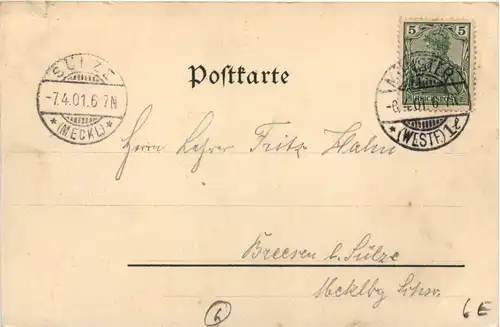 SÜLZE
-7.4.01.6-7N
*(MECKL)*
Postkarte
5
5
-6.4.01.6-7N
*(WESTF.)1e
Herrn Lehrer Fritz Hahn
Breesen b. Sülze
Mecklbg Schw.
6
6E